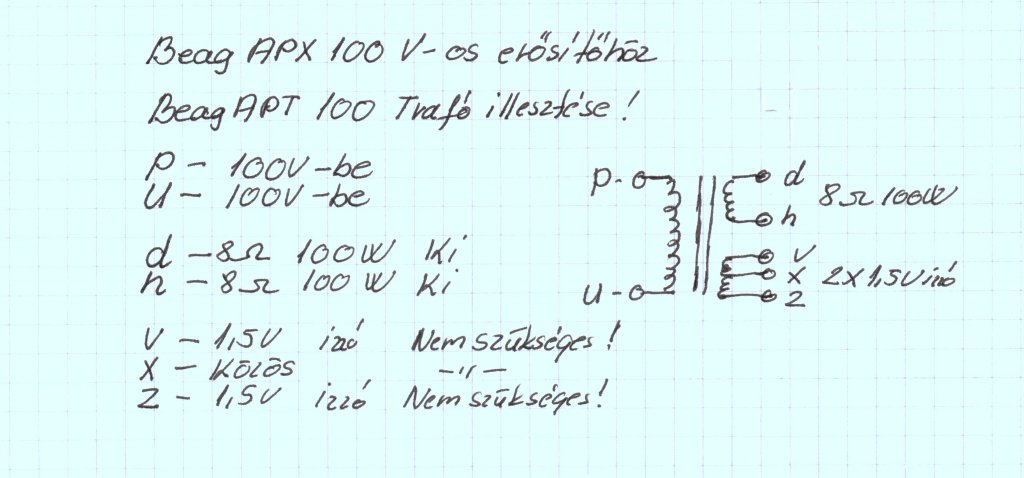 Beag APX 100 V-os erősítőhöz
Beag APT 100 Trafó illesztése!
P - 100V-be
U - 100V-be
d - 8Ω 100W Ki
h - 8Ω 100W Ki
V - 1,5V izó Nem szükséges!
X - Közös -"-
Z - 1,5V izzó Nem szükséges!
P-
d
8Ω 100W
h
V
X
2X1,5V izó
U-
Z